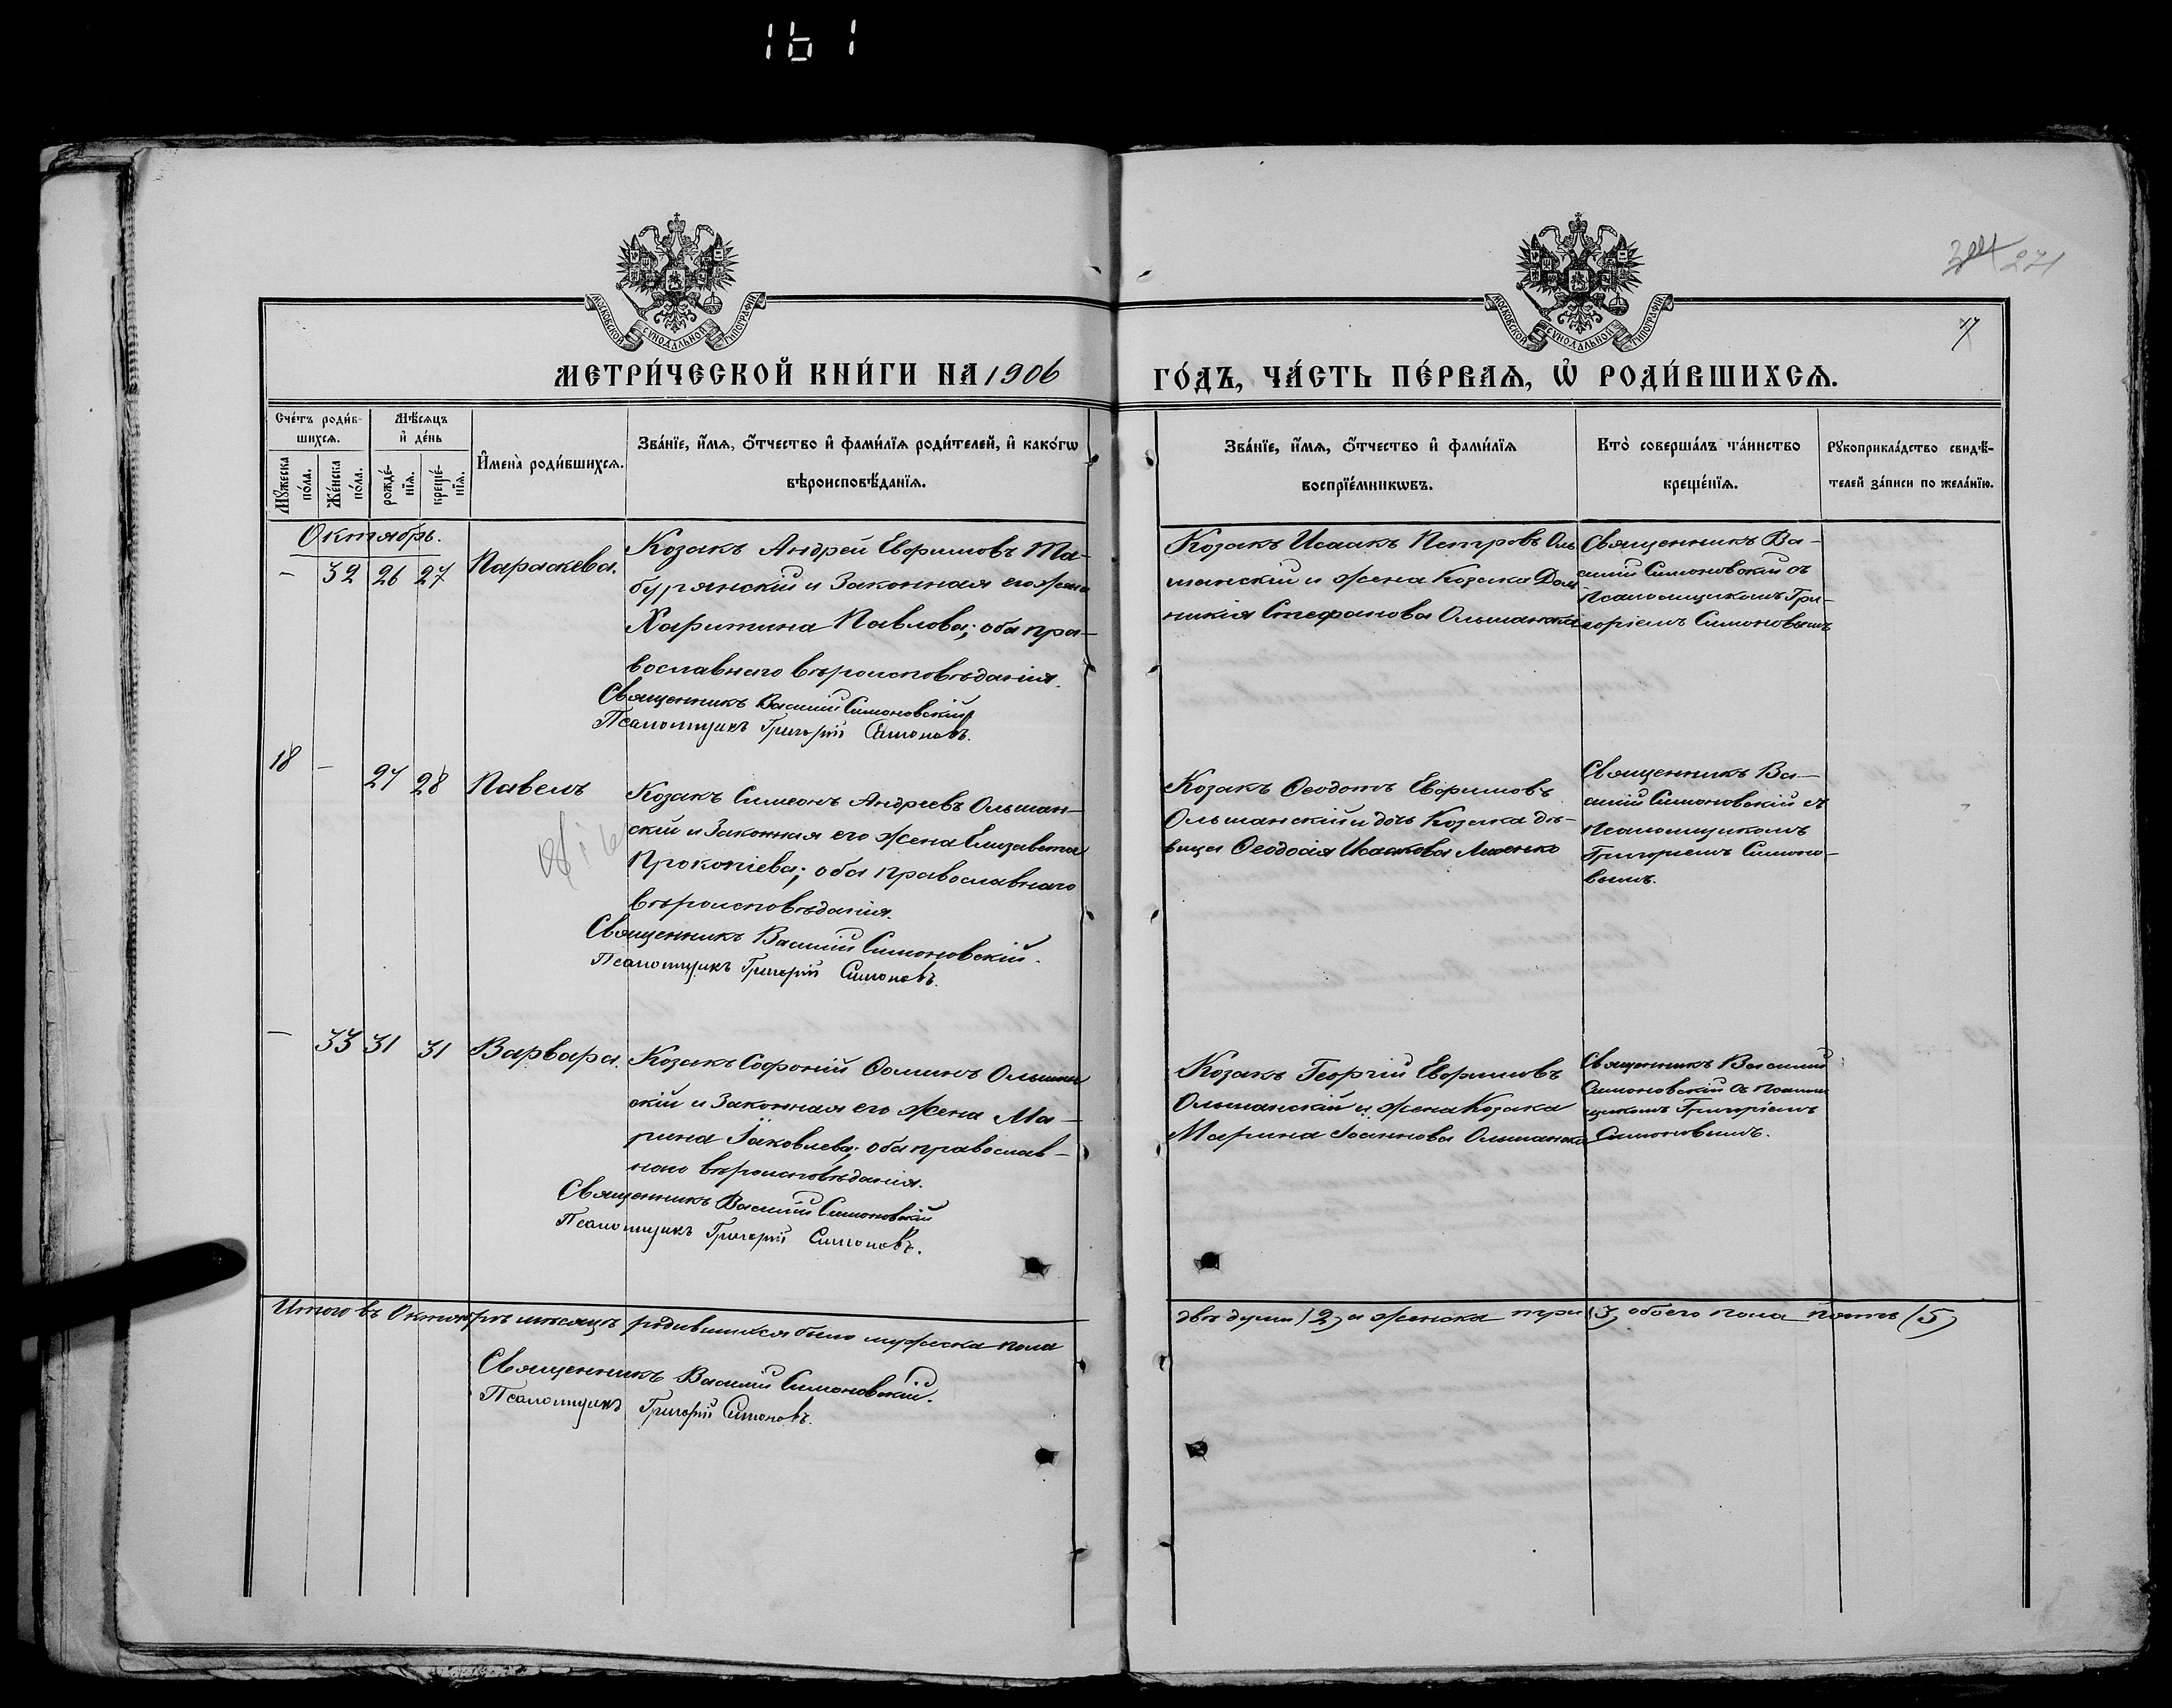 161
271
МОСКОВСКОЙ СѴНОДАЛЬНОЙ ТИПОГРАФІИ
МОСКОВСКОЙ СѴНОДАЛЬНОЙ ТИПОГРАФІИ
МЕТРИ́ЧЕСКОЙ КНИ́ГИ НА 1906
ГО́ДЪ, ЧА́СТЬ ПЕ́РВАѦ, Ѡ҆ РОДИ́ВШИХСѦ.
Сче́тъ роди́в-
шихсѧ.
Мꙋ́жеска по́ла.
Же́нска по́ла.
Мѣ́сѧцъ
и҆ де́нь
рожде́-нїѧ.
креще́-нїѧ.
И҆мена̀ роди́вшихсѧ.
Зва́нїе, и҆́мѧ, ѻ҆́тчество и҆ фами́лїѧ роди́телей, и҆ како́гѡ
вѣроисповѣ́данїѧ.
Зва́нїе, и҆́мѧ, ѻ҆́тчество и҆ фами́лїѧ
воспрїе́мникѡвъ.
Кто̀ соверша́лъ та́инство
креще́нїѧ.
Рꙋкоприкла́дство свидѣ́-
телей за́писи по жела́нїю.
Октябрь.
- 32 26 27 Параскева.
Козакъ Андрей Ефимовъ Та-
бурянскій и законная его жена
Харитина Павлова; оба пра-
вославнаго вѣроисповѣданія.
Священникъ Василій Симоновскій
Псаломщикъ Григорій Симоновъ.
Козакъ Исаакъ Петровъ Оль
шанскій и жена Козака Дом
никія Стефанова Ольшанская
Священникъ Ва-
силій Симоновскій съ
Псаломщикомъ Гри-
горіемъ Симоновымъ
18 - 27 28 Павелъ
Козакъ Симеонъ Андреевъ Ольшан-
скій и законная его жена Елизавета
Прокопіева; оба православнаго
вѣроисповѣданія.
Священникъ Василій Симоновскій.
Псаломщикъ Григорій Симоновъ.
Козакъ Ѳеодотъ Ефимовъ
Ольшанскій и дочь Козака дѣ-
вица Ѳеодосія Исаакова
Священникъ Ва-
силій Симоновскій съ
Псаломщикомъ
Григоріемъ Симоно-
вымъ.
- 33 31 31 Варвара.
Козакъ Софоній Ѳоминъ Ольшан
скій и законная его жена Ма-
рина Іаковлева; оба православ-
наго вѣроисповѣданія.
Священникъ Василій Симоновскій
Псаломщикъ Григорій Симоновъ.
Козакъ Георгій Ефимовъ
Ольшанскій и жена Козака
Марина Іоаннова Ольшанская
Священникъ Василій
Симоновскій съ псалом
щикомъ Григоріемъ
Симоновымъ.
Итого въ Октябрѣ мѣсяцѣ родившихся было мужеска пола
двѣ души (2) а женска три (3) обоего пола пять (5)
Священникъ Василій Симоновскій.
Псаломщикъ Григорій Симоновъ.